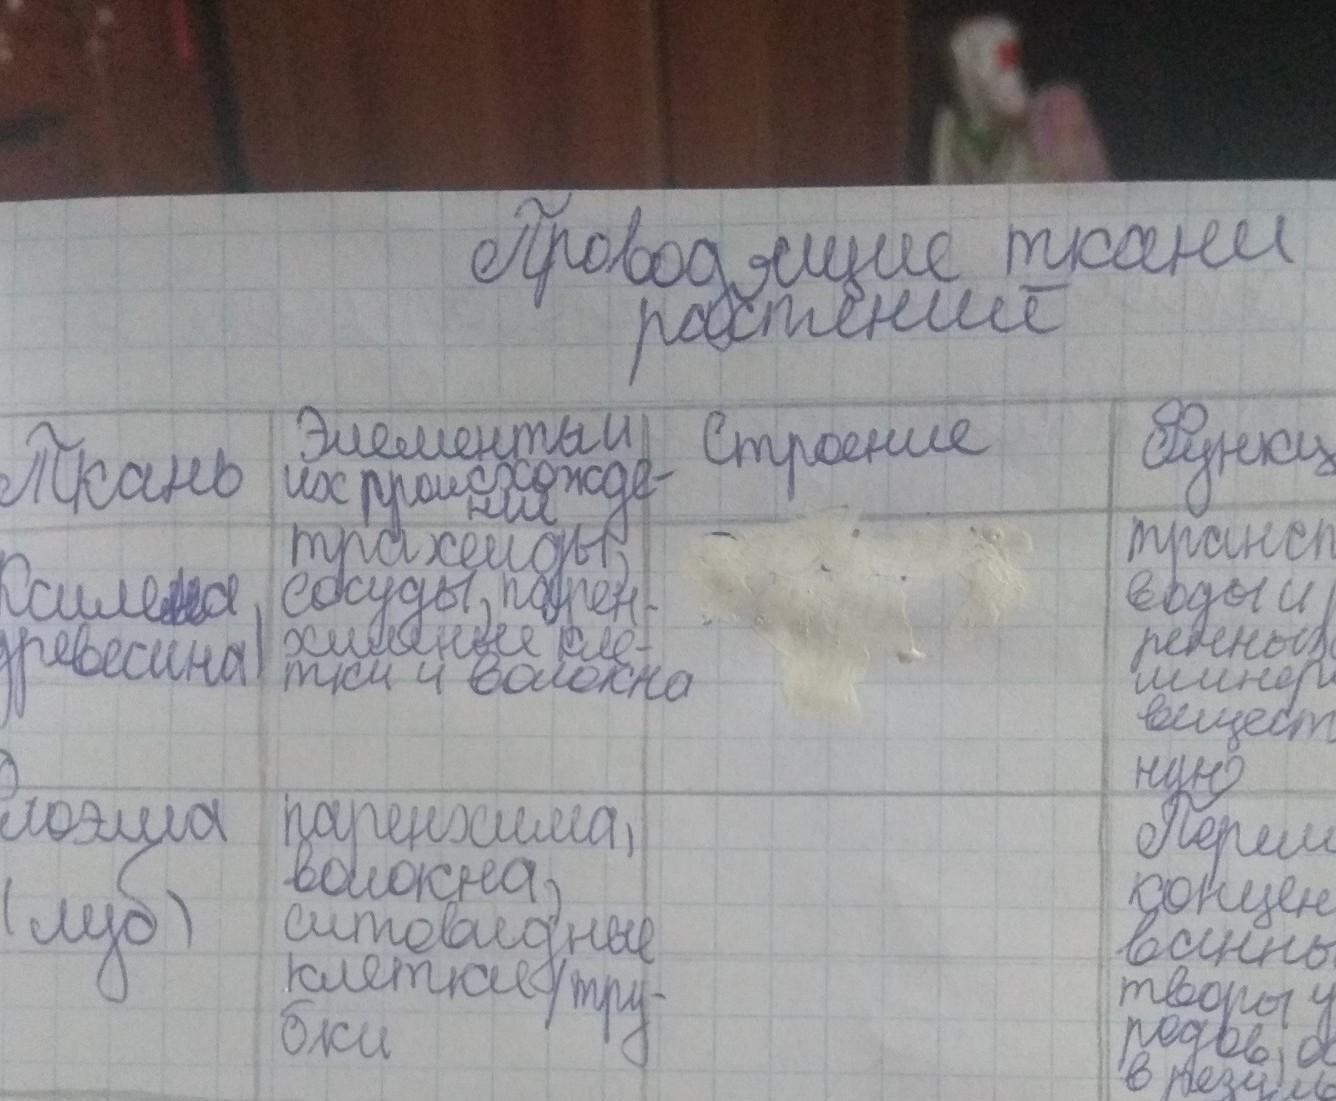 Проводящие ткани
растений
Ткань
Элементы и
их происхожде-
ние
Строение
Функц
Ксилема,
древесина
трахеиды,
сосуды, парен-
химные кле-
тки и волокна
трансп
воды и
ренных
минер
вещест
ную
Флоэма
(луб)
паренхима,
волокна,
ситовидные
клетки/тру-
бки
Перем
концен
творы у
родов, об
в резуль